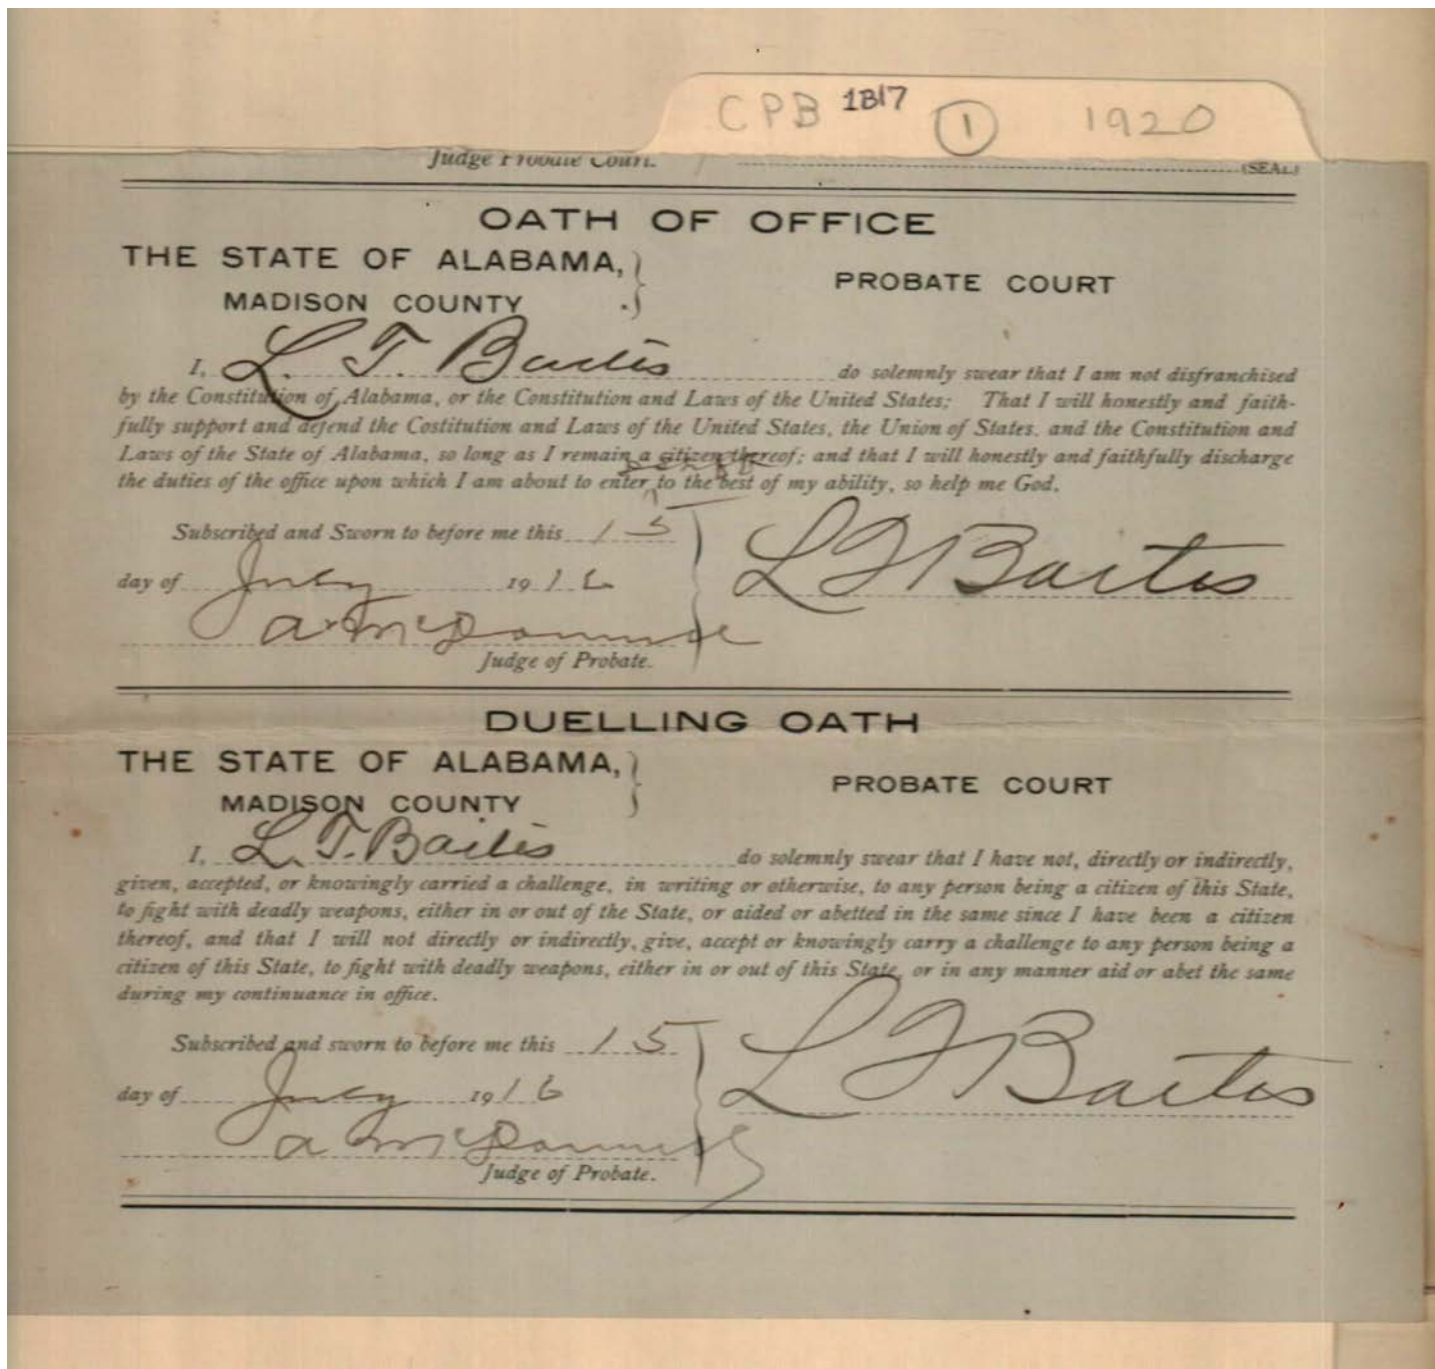 CPB 1817 1 1920
Judge Probate Court. (SEAL)
OATH OF OFFICE
THE STATE OF ALABAMA,
MADISON COUNTY
PROBATE COURT
I, L. T. Baites do solemnly swear that I am not disfranchised
by the Constitution of Alabama, or the Constitution and Laws of the United States; That I will honestly and faith-
fully support and defend the Costitution and Laws of the United States, the Union of States, and the Constitution and
Laws of the State of Alabama, so long as I remain a citizen thereof; and that I will honestly and faithfully discharge
the duties of the office upon which I am about to enter to the best of my ability, so help me God.
Subscribed and Sworn to before me this 15
day of July 1916
L T Baites
Judge of Probate.
DUELLING OATH
THE STATE OF ALABAMA,
MADISON COUNTY
PROBATE COURT
I, L. T. Baites do solemnly swear that I have not, directly or indirectly,
given, accepted, or knowingly carried a challenge, in writing or otherwise, to any person being a citizen of this State,
to fight with deadly weapons, either in or out of the State, or aided or abetted in the same since I have been a citizen
thereof, and that I will not directly or indirectly, give, accept or knowingly carry a challenge to any person being a
citizen of this State, to fight with deadly weapons, either in or out of this State, or in any manner aid or abet the same
during my continuance in office.
Subscribed and sworn to before me this 15
day of July 1916
L T Baites
Judge of Probate.